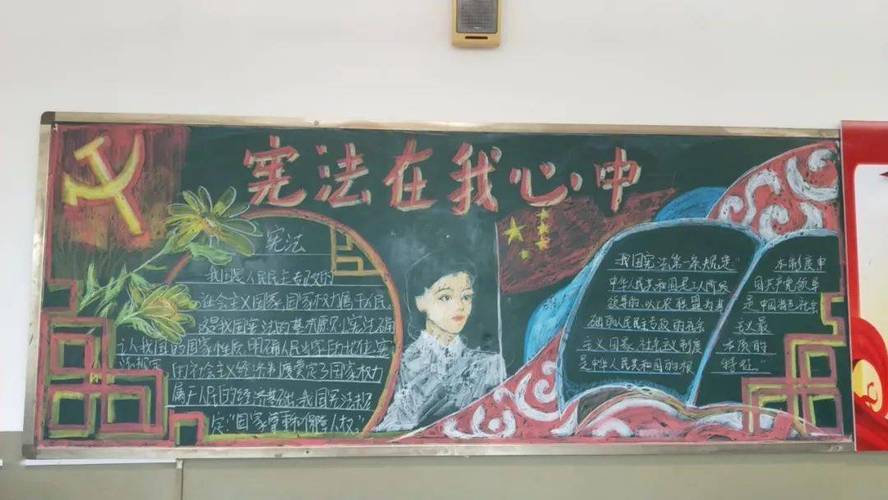 宪法在我心中
宪法
我国是人民民主专政的
社会主义国家,国家权力属于人民
这是我国宪法的基本原则,宪法确
认我国的国家性质,明确人民当家的地位,实
社会主义经济制度
国家权力
属于人民的经济基础,我国宪法规
定:“国家尊重和保障人权。”
我国宪法第一条规定“
中华人民共和国是工人阶级
领导的,以工农联盟为基
础的人民民主专政的社会
主义国家,社会主义制度
是中华人民共和国的根
本制度,中
国共产党领导
是中国特色社会
主义最
本质的
特征。”